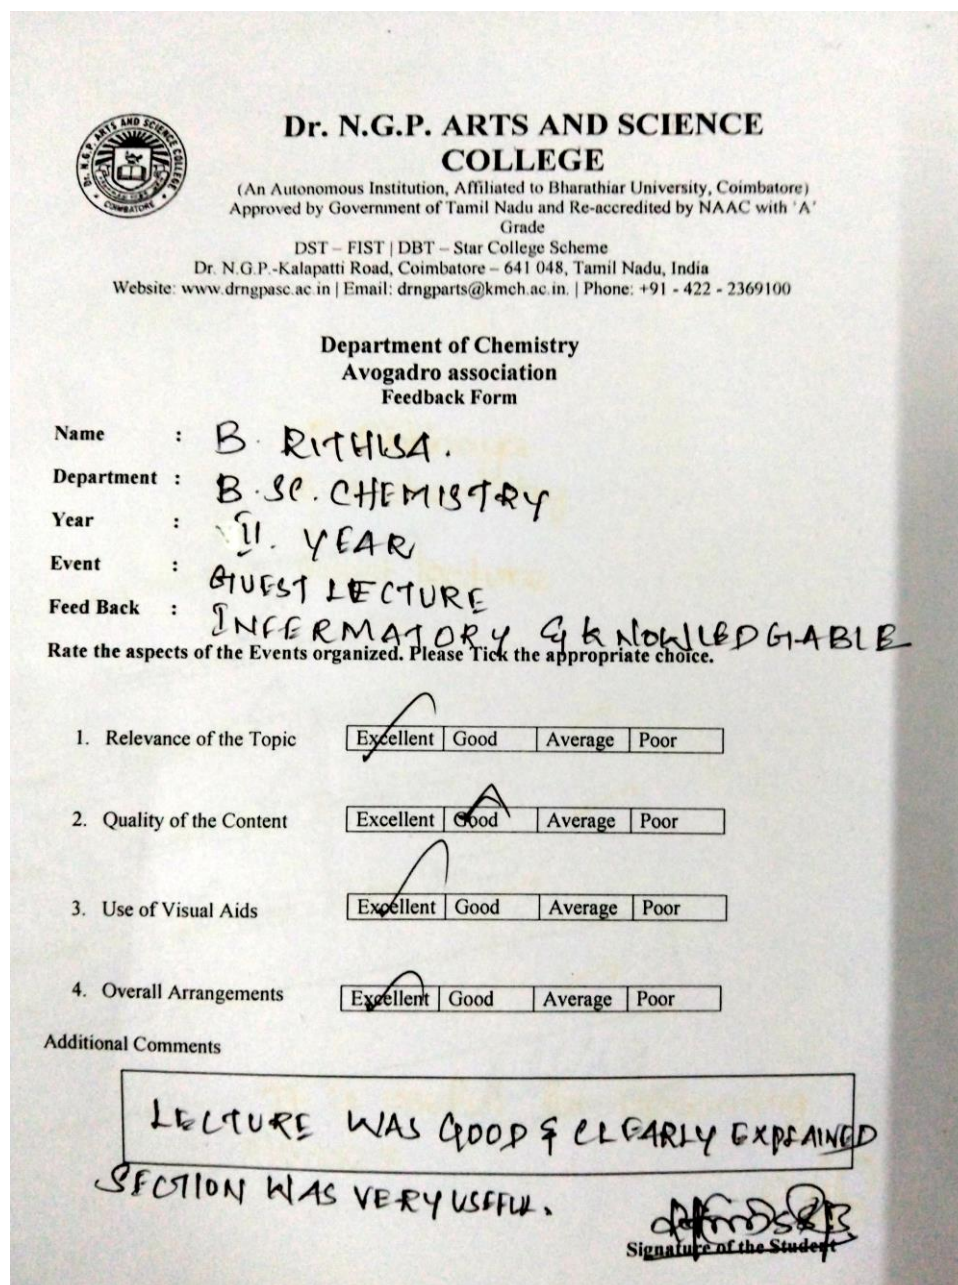 Dr. N.G.P. ARTS AND SCIENCE
COLLEGE
(An Autonomous Institution, Affiliated to Bharathiar University, Coimbatore)
Approved by Government of Tamil Nadu and Re-accredited by NAAC with 'A'
Grade
DST – FIST | DBT – Star College Scheme
Dr. N.G.P.-Kalapatti Road, Coimbatore – 641 048, Tamil Nadu, India
Website: www.drngpasc.ac.in | Email: drngparts@kmch.ac.in. | Phone: +91 - 422 - 2369100
Dr. N.G.P. ARTS AND SCIENCE COLLEGE
COIMBATORE
Department of Chemistry
Avogadro association
Feedback Form
Name : B. RITHISA.
Department : B.SC. CHEMISTRY
Year : II. YEAR
Event : GUEST LECTURE
Feed Back : INFERMATORY & KNOWLEDGABLE
Rate the aspects of the Events organized. Please Tick the appropriate choice.
1. Relevance of the Topic Excellent Good Average Poor
2. Quality of the Content Excellent Good Average Poor
3. Use of Visual Aids Excellent Good Average Poor
4. Overall Arrangements Excellent Good Average Poor
Additional Comments
LECTURE WAS GOOD & CLEARLY EXPLAINED
SECTION WAS VERY USEFUL.
Signature of the Student